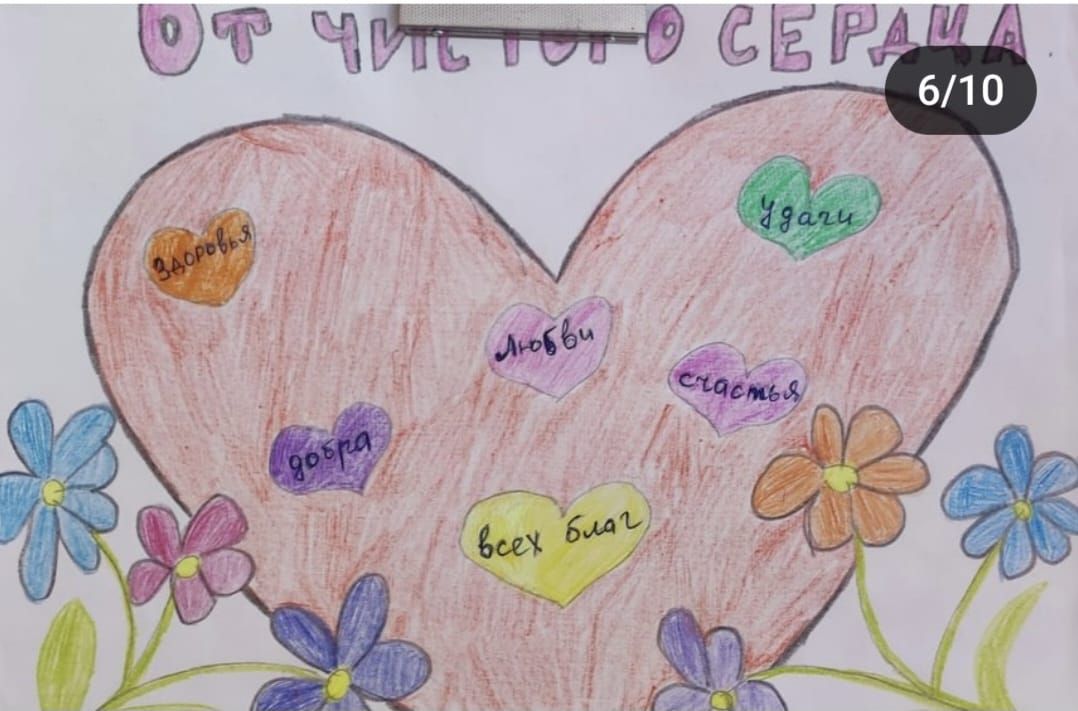 ОТ ЧИСТОГО СЕРДЦА
6/10
Удаги
Здоровья
Любви
счастья
добра
всех благ